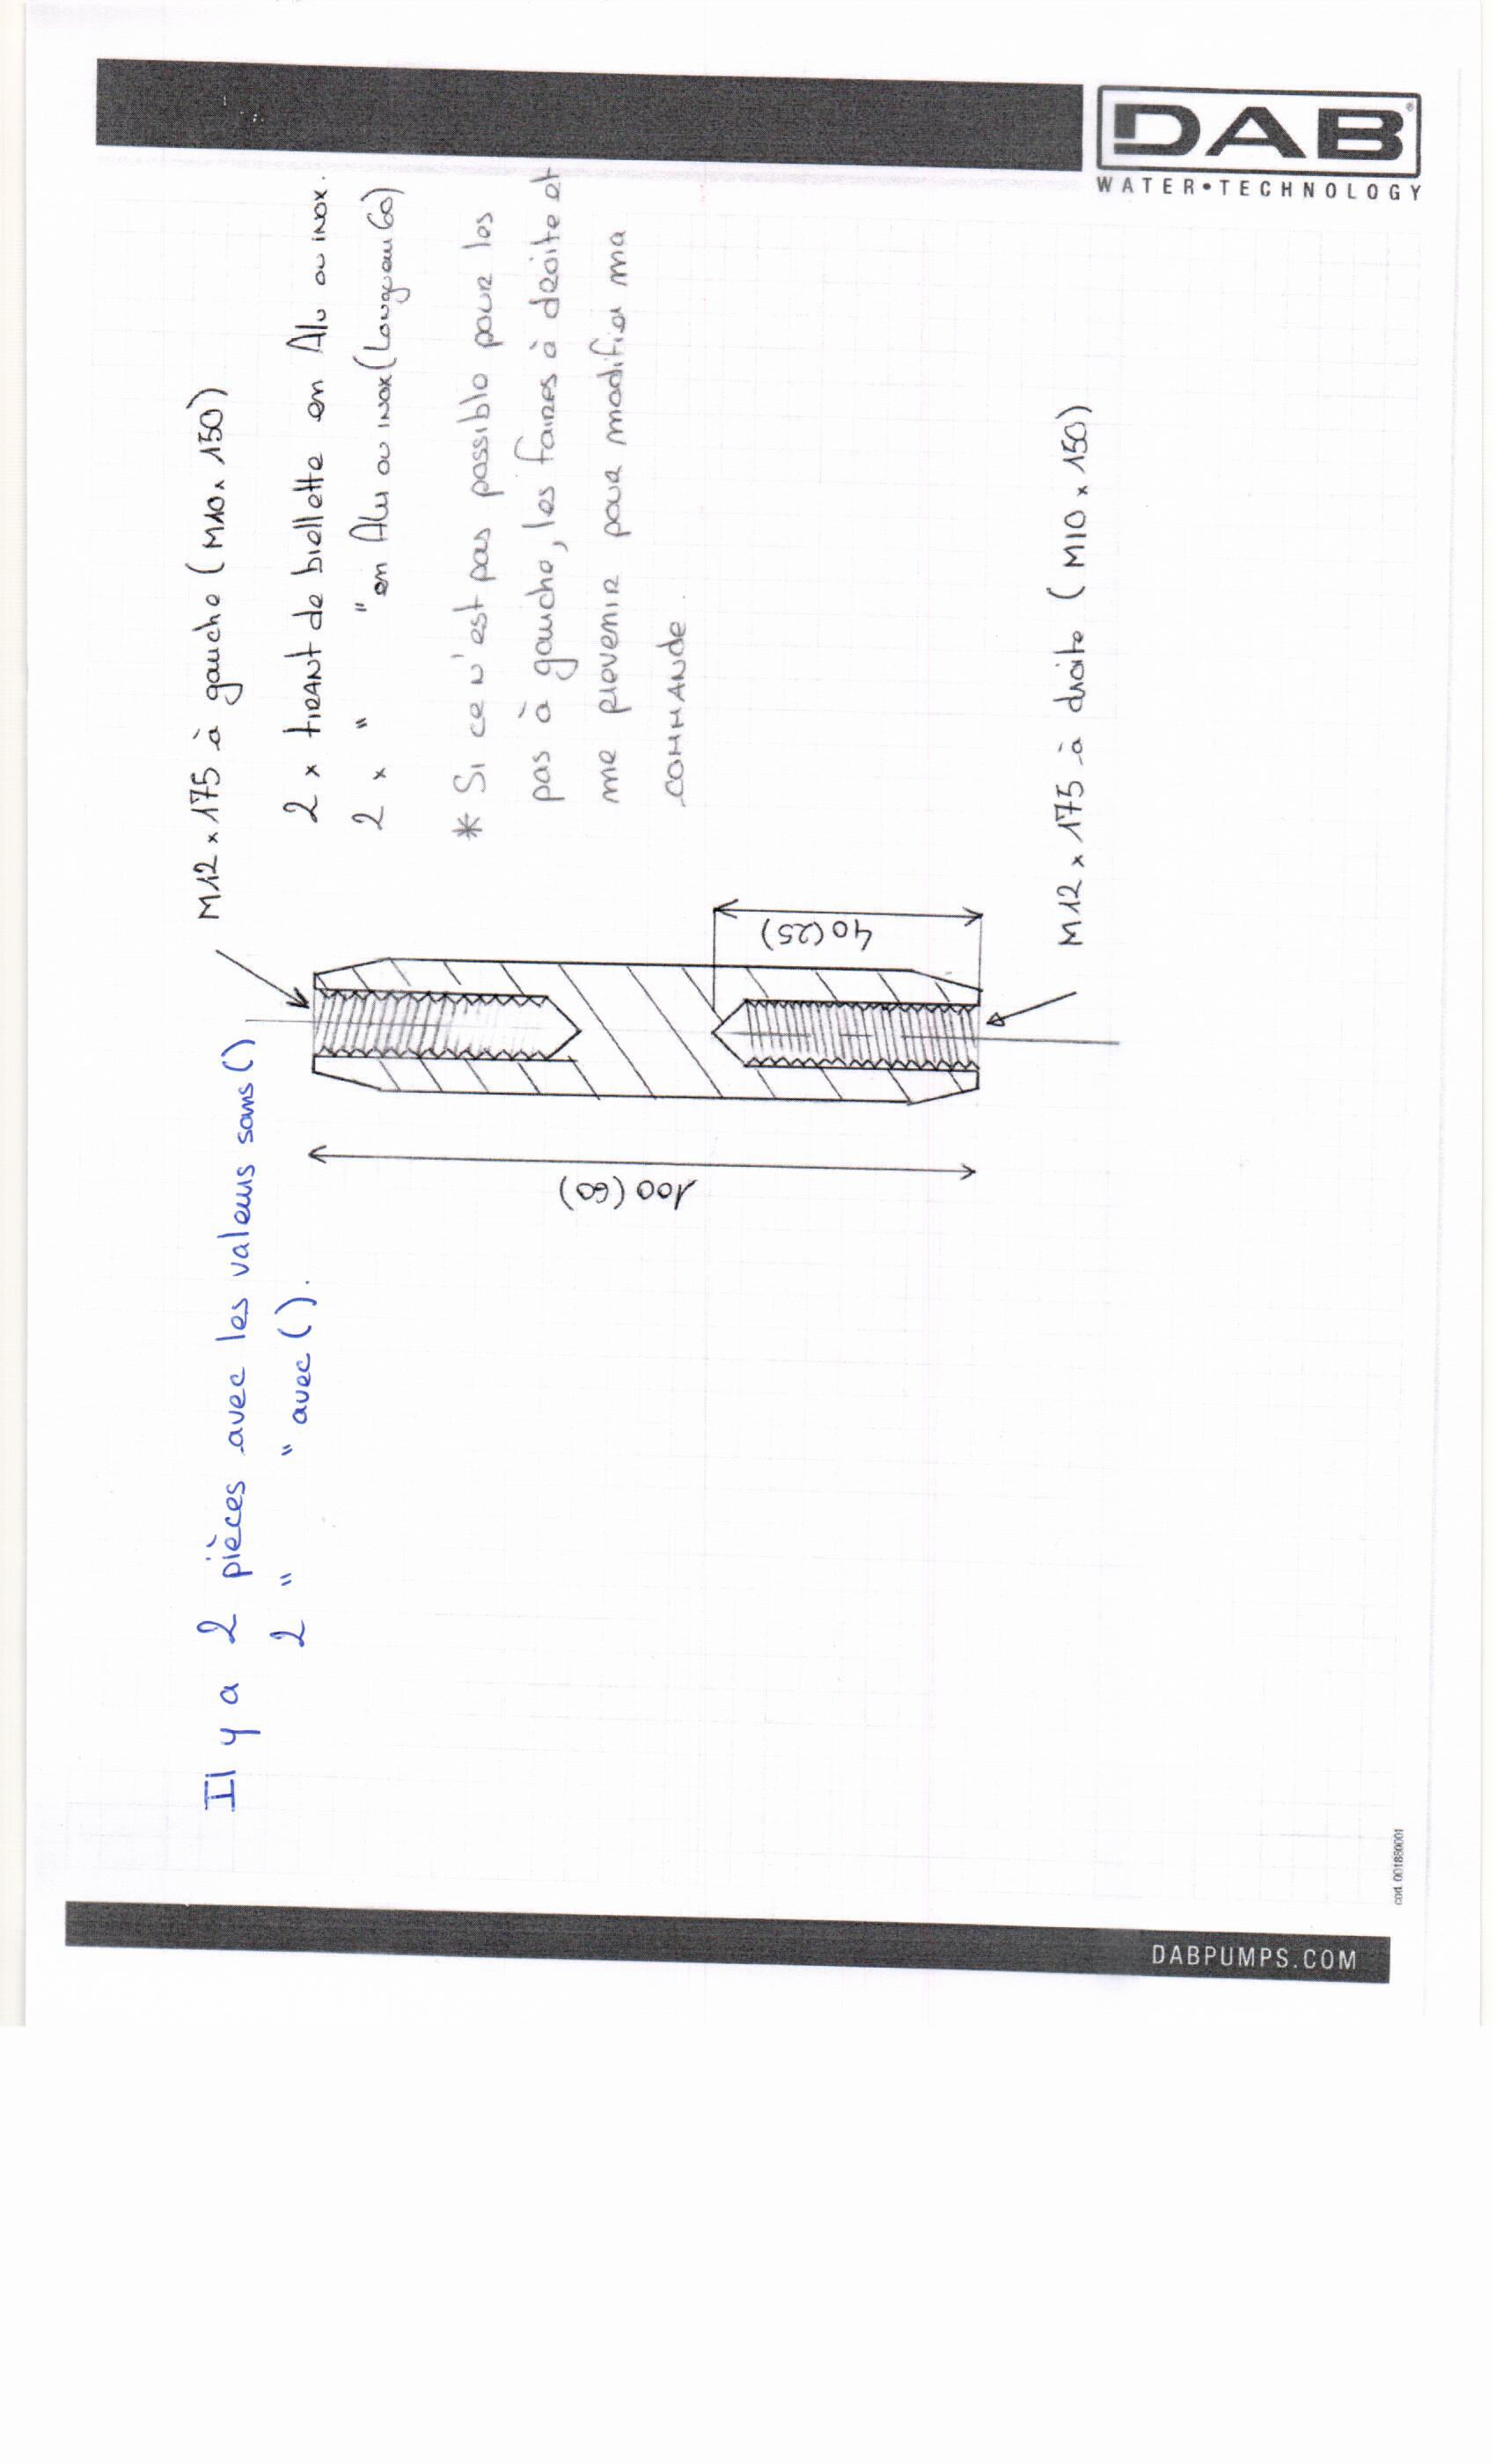 DAB
WATER•TECHNOLOGY
M12 x 175 à gauche (M10 x 150)
2 x tirant de biellette en Alu ou inox.
2 x " " en Alu ou inox (Longueur 60)
* Si ce n'est pas possible pour les
pas à gauche, les faires à droite et
me prevenir pour modifier ma
commande.
40 (25)
100 (60)
M12 x 175 à droite (M10 x 150)
Il y a 2 pièces avec les valeurs sans ()
2 " " avec ().
cod. 001880001
DABPUMPS.COM